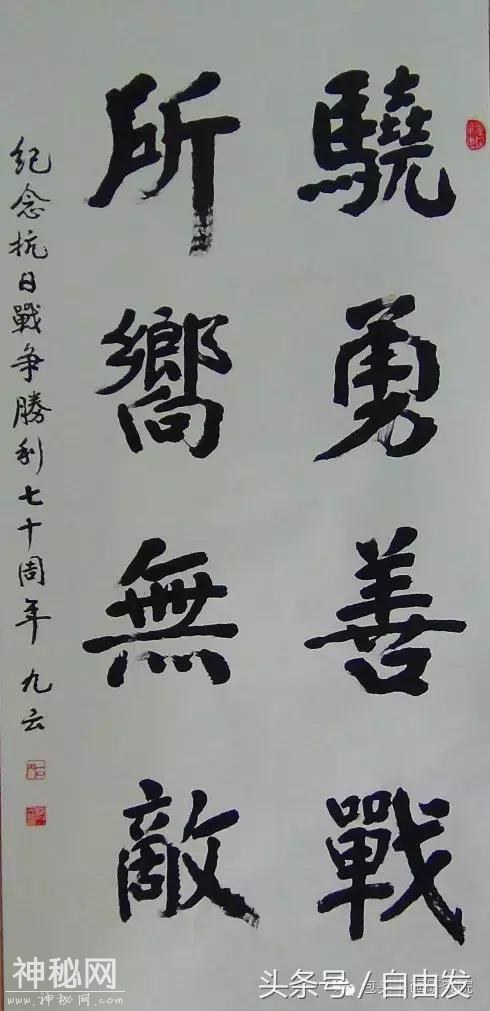 驍勇善戰
所嚮無敵
紀念抗日戰争勝利七十周年 九云
神秘网
www.神秘网.com
头条号／自由发